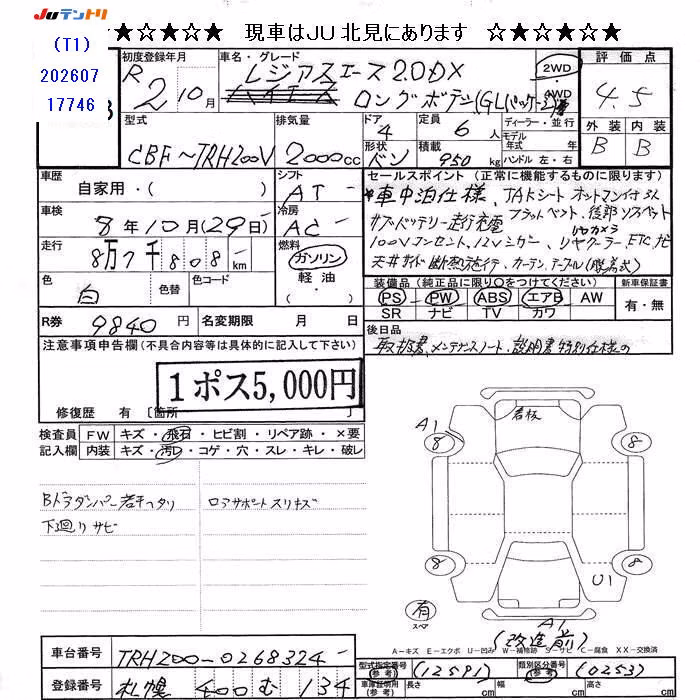 JUテントリ
★☆★☆★☆ 現車はJU北見にあります ☆★☆★☆★
(T1)
202607
17746
初度登録年月
R2 10月
車名・グレード
レジアスエース 2.0DX
ロングボデー(GLパッケージ)
2WD
4WD
評価点
4.5
外装 内装
B B
型式
CBF-TRH200V
排気量
2000cc
ドア
4
定員
6人
ディーラー・並行
モデル年式 年式
形状
バン
積載
950kg
ハンドル 左・右
車歴
自家用・( )
シフト
AT
車検
8年10月(29日)
冷房
AC
走行
8万7千808km
燃料
ガソリン
軽油
( )
色
白
色替
色コード
R券
9840円
名変期限 月 日
セールスポイント(正常に機能するものに限ります)
車中泊仕様、
サブバッテリー走行充電
100Vコンセント、12Vシガー、リヤクーラー ETC ナビ
リヤカメラ
天井サイド断熱施行、カーテン、テーブル(脱着式)
装備品(純正品に限り○をつけてください)
PS PW ABS エアB AW
SR ナビ TV カワ
新車保証書
有・無
後日品
取扱書、メンテナンスノート、説明書
注意事項申告欄(不具合内容等は具体的に記入して下さい)
1ポス5,000円
修復歴 有 〔箇所 〕
検査員記入欄
FW キズ・飛石・ヒビ割・リペア跡・×要
内装 キズ・汚レ・コゲ・穴・スレ・キレ・破レ
Bドアダンパー若干ヘタリ
下廻りサビ
ロアサポートスリキズ
看板
A1
8
8
8
8
U1
有
スペア
A1
(改造前)
A-キズ E-エクボ U-凹み W-補修跡 S-サビ C-腐食 XX-交換済
車台番号
TRH200-0268324
登録番号
札幌 400 む 134
型式指定番号
(参考)
(12591)
類別区分番号
(参考)
(0253)
車庫証明用(参考)
長さ cm
幅 cm
高さ cm